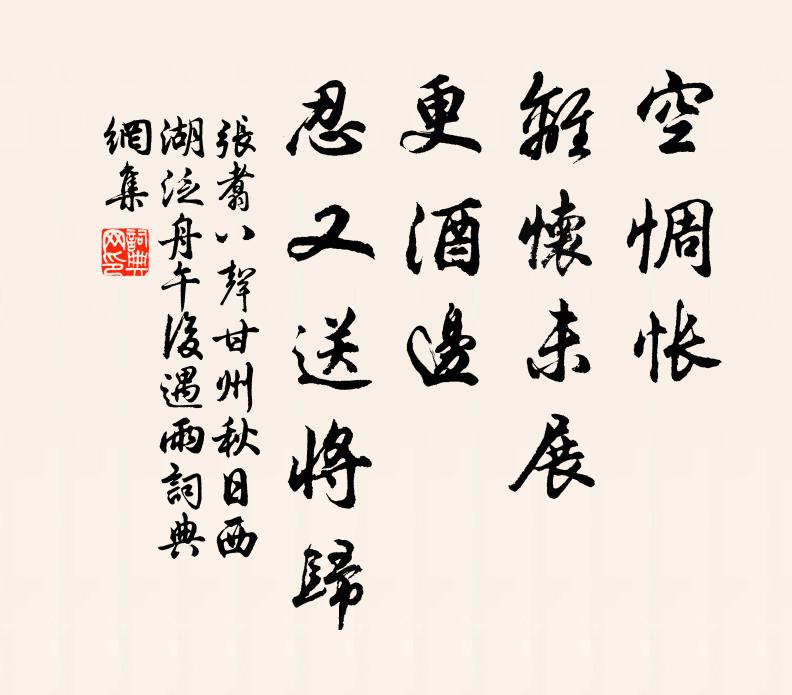 空惆悵
離懷未展
更酒邊
忍又送將歸
張翥八聲甘州秋日西
湖泛舟午後遇雨詞典
網集
詞典
网印